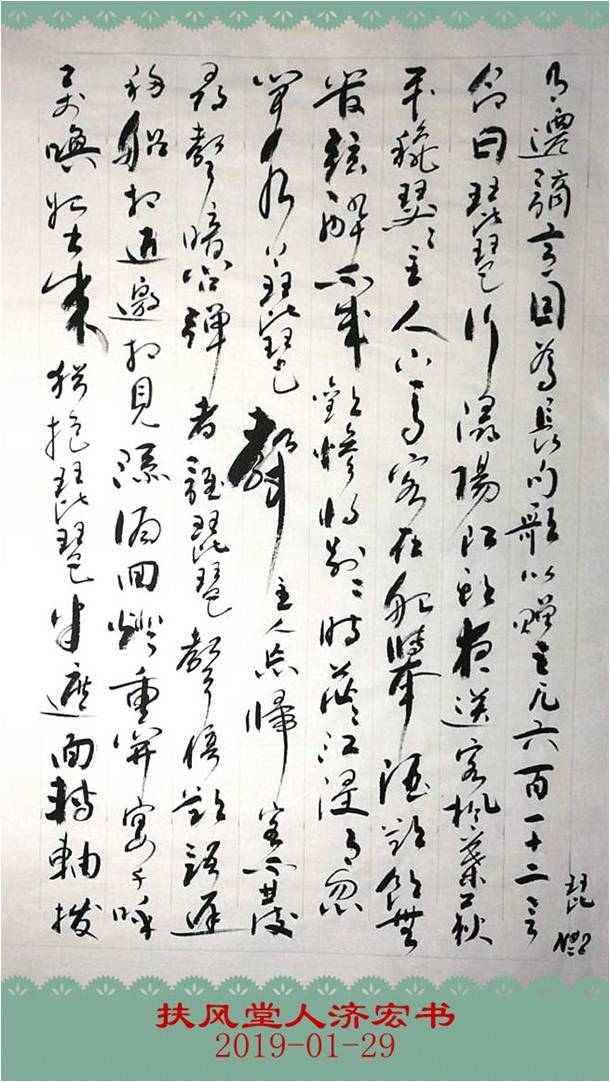 有遷謫意因為長句歌以贈之凡六百一十二言
命曰琵琶行潯陽江頭夜送客楓葉荻
花秋瑟〻主人下馬客在船舉酒欲飲無
管弦醉不成歡慘將別〻時茫〻江浸月忽
聞水上琵琶聲主人忘歸客不發
尋聲暗問彈者誰琵琶聲停欲語遲
移船相近邀相見添酒回燈重開宴千呼
萬喚始出來猶抱琵琶半遮面轉軸撥
扶风堂人济宏书
2019-01-29